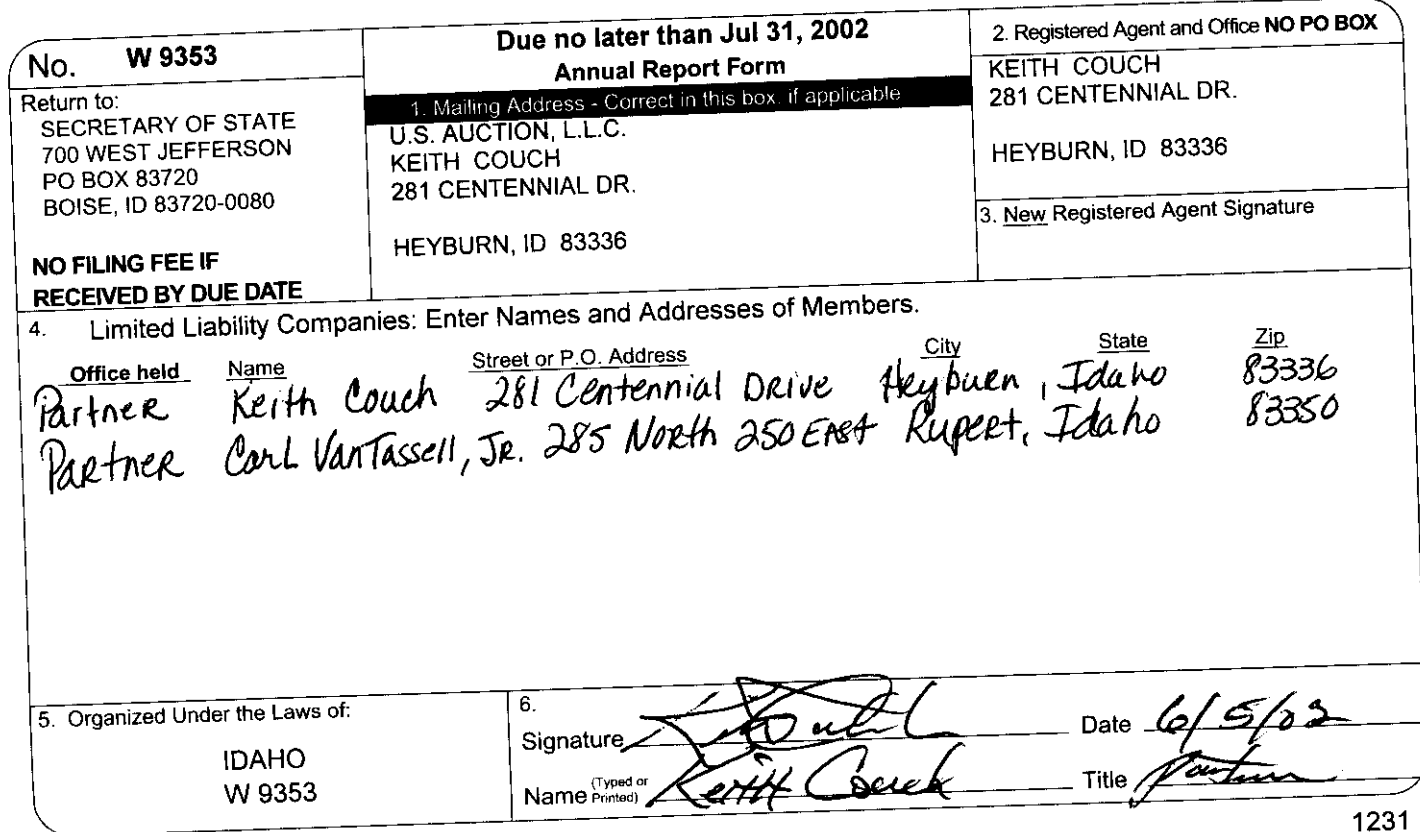 No. W 9353
Return to:
SECRETARY OF STATE
700 WEST JEFFERSON
PO BOX 83720
BOISE, ID 83720-0080
NO FILING FEE IF
RECEIVED BY DUE DATE
Due no later than Jul 31, 2002
Annual Report Form
1. Mailing Address - Correct in this box, if applicable
U.S. AUCTION, L.L.C.
KEITH COUCH
281 CENTENNIAL DR.
HEYBURN, ID 83336
2. Registered Agent and Office NO PO BOX
KEITH COUCH
281 CENTENNIAL DR.
HEYBURN, ID 83336
3. New Registered Agent Signature
4. Limited Liability Companies: Enter Names and Addresses of Members.
Office held Name Street or P.O. Address City State Zip
Partner Keith Couch 281 Centennial Drive Heyburn, Idaho 83336
Partner Carl VanTassell, Jr. 285 North 250 East Rupert, Idaho 83350
5. Organized Under the Laws of:
IDAHO
W 9353
6.
Signature Date 6/5/02
Name (Typed or Printed) Keith Couch Title Partner
1231